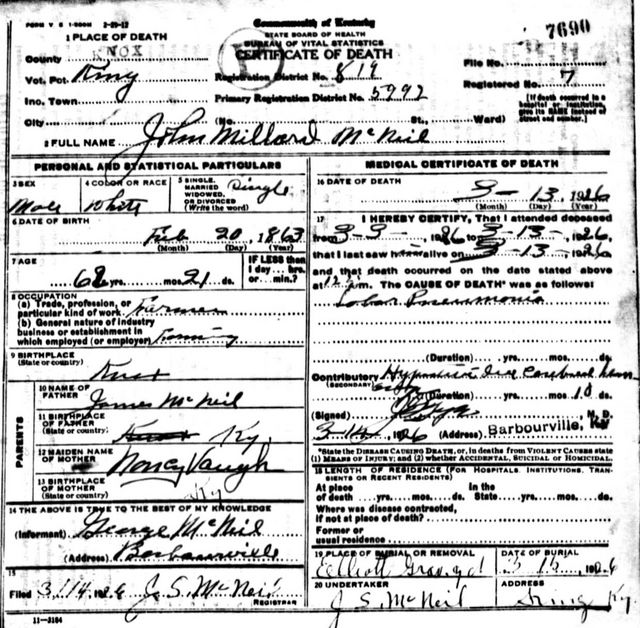 FORM V. S. 1-500M 2-29-12
Commonwealth of Kentucky
STATE BOARD OF HEALTH
BUREAU OF VITAL STATISTICS
CERTIFICATE OF DEATH
7690
1 PLACE OF DEATH
County KNOX
Vot. Pct. King
Inc. Town
City
Registration District No. 819
Primary Registration District No. 5992
(No. St., Ward)
File No.
Registered No. 7
(If death occurred in a hospital or institution, give its NAME instead of street and number.)
2 FULL NAME John Millard McNeil
PERSONAL AND STATISTICAL PARTICULARS
3 SEX Male
4 COLOR OR RACE White
5 SINGLE, MARRIED WIDOWED, OR DIVORCED (Write the word) Single
6 DATE OF BIRTH
Feb 20, 1863
(Month) (Day) (Year)
7 AGE
IF LESS than 1 day... hrs. or min.?
62 yrs. mos. 21 ds.
8 OCCUPATION
(a) Trade, profession, or particular kind of work Farmer
(b) General nature of industry business or establishment in which employed (or employer) Farming
9 BIRTHPLACE
(State or country) Knox
PARENTS
10 NAME OF FATHER James McNeil
11 BIRTHPLACE OF FATHER (State or country) Knox Ky.
12 MAIDEN NAME OF MOTHER Nancy Vaugh
13 BIRTHPLACE OF MOTHER (State or country) Ky
14 THE ABOVE IS TRUE TO THE BEST OF MY KNOWLEDGE
(Informant) George McNeil
(Address) Barbourville
15
Filed 3/14 1926 J. S. McNeil
REGISTRAR
11-3184
MEDICAL CERTIFICATE OF DEATH
16 DATE OF DEATH
3- 13, 1926
(Month) (Day) (Year)
17 I HEREBY CERTIFY, That I attended deceased
from 3-3- 1926 to 3-13-, 1926,
that I last saw h alive on 3-13, 1926
and that death occurred on the date stated above
at 12 m. The CAUSE OF DEATH* was as follows:
Lobar Pneumonia
(Duration) yrs. mos. ds.
Contributory
(SECONDARY)
(Duration) yrs. mos. 10 ds.
(Signed) M. D.
1926 (Address) Barbourville, Ky
*State the DISEASE CAUSING DEATH, or, in deaths from VIOLENT CAUSES state (1) MEANS OF INJURY; and (2) whether ACCIDENTAL, SUICIDAL or HOMICIDAL.
18 LENGTH OF RESIDENCE (FOR HOSPITALS, INSTITUTIONS, TRANSIENTS OR RECENT RESIDENTS)
At place of death yrs. mos. ds.
In the State yrs. mos. ds.
Where was disease contracted, if not at place of death?
Former or usual residence
19 PLACE OF BURIAL OR REMOVAL Elliott Graveyd
DATE OF BURIAL 3 15, 1926
20 UNDERTAKER J. S. McNeil
ADDRESS Ky.